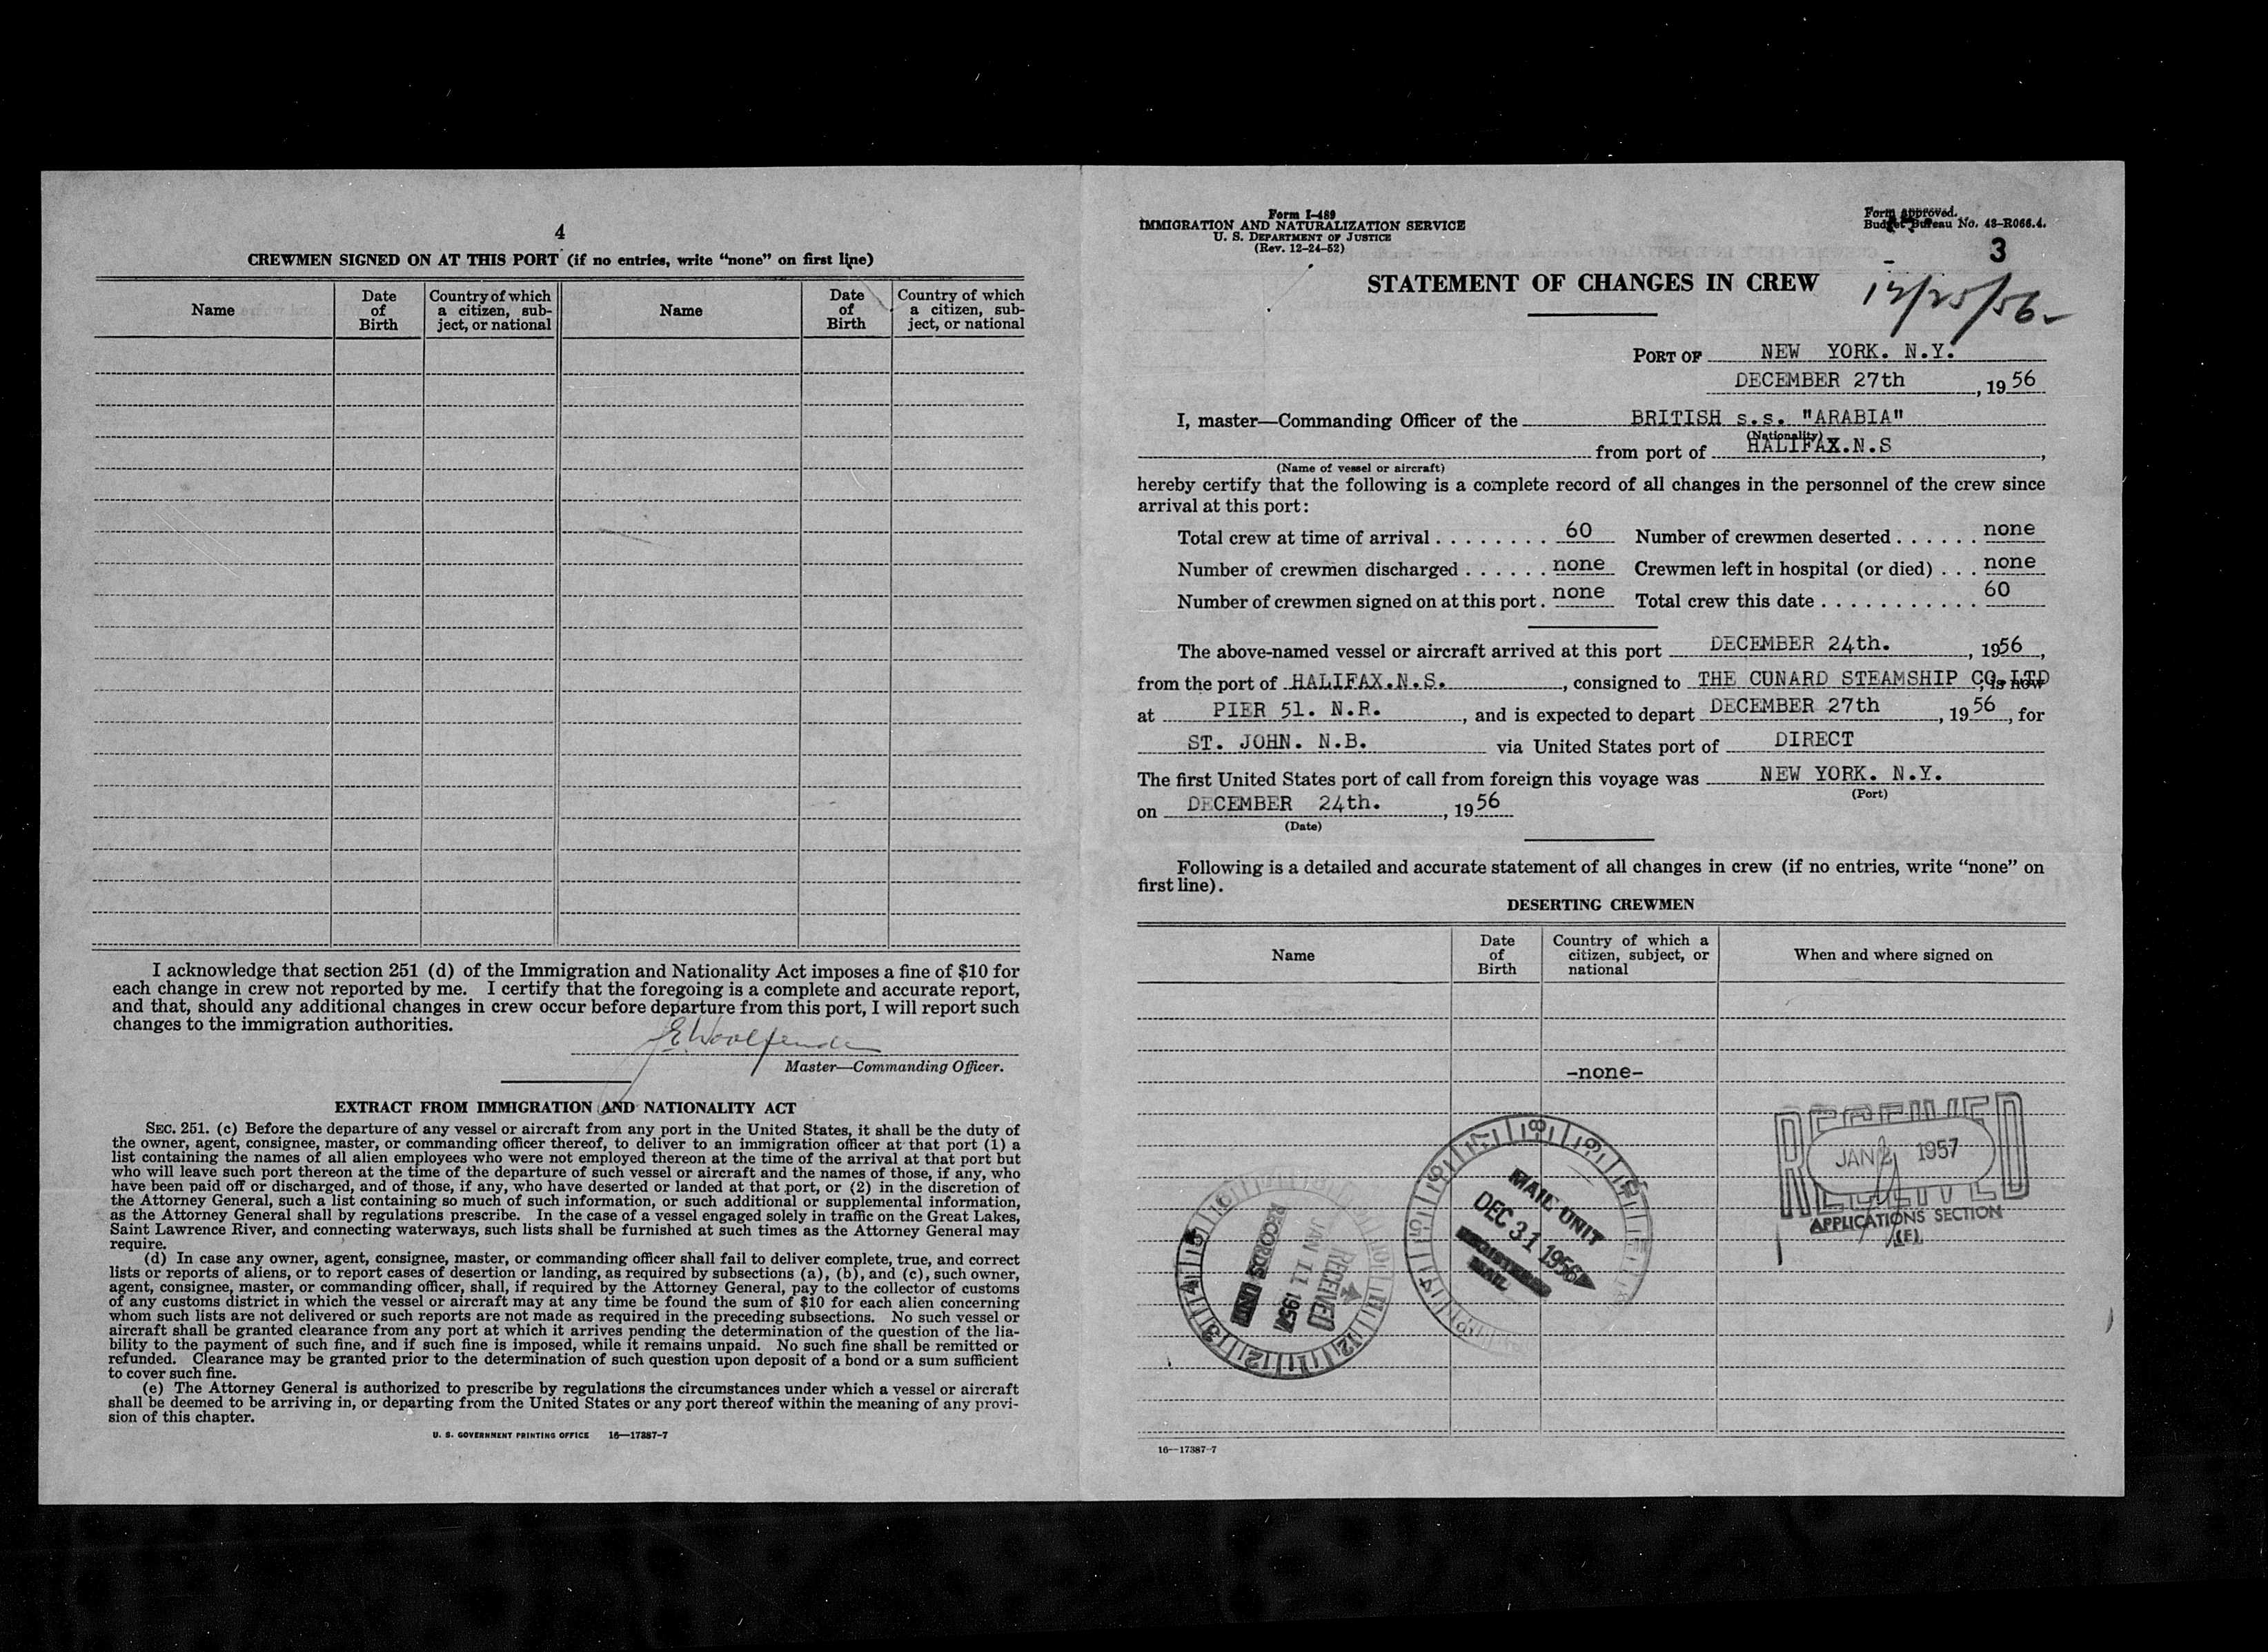 4
CREWMEN SIGNED ON AT THIS PORT (if no entries, write "none" on first line)
Name
Date of Birth
Country of which a citizen, subject, or national
Name
Date of Birth
Country of which a citizen, subject, or national
I acknowledge that section 251 (d) of the Immigration and Nationality Act imposes a fine of $10 for
each change in crew not reported by me. I certify that the foregoing is a complete and accurate report,
and that, should any additional changes in crew occur before departure from this port, I will report such
changes to the immigration authorities.
E Woolfenden
Master—Commanding Officer.
EXTRACT FROM IMMIGRATION AND NATIONALITY ACT
SEC. 251. (c) Before the departure of any vessel or aircraft from any port in the United States, it shall be the duty of
the owner, agent, consignee, master, or commanding officer thereof, to deliver to an immigration officer at that port (1) a
list containing the names of all alien employees who were not employed thereon at the time of the arrival at that port but
who will leave such port thereon at the time of the departure of such vessel or aircraft and the names of those, if any, who
have been paid off or discharged, and of those, if any, who have deserted or landed at that port, or (2) in the discretion of
the Attorney General, such a list containing so much of such information, or such additional or supplemental information,
as the Attorney General shall by regulations prescribe. In the case of a vessel engaged solely in traffic on the Great Lakes,
Saint Lawrence River, and connecting waterways, such lists shall be furnished at such times as the Attorney General may
require.
(d) In case any owner, agent, consignee, master, or commanding officer shall fail to deliver complete, true, and correct
lists or reports of aliens, or to report cases of desertion or landing, as required by subsections (a), (b), and (c), such owner,
agent, consignee, master, or commanding officer, shall, if required by the Attorney General, pay to the collector of customs
of any customs district in which the vessel or aircraft may at any time be found the sum of $10 for each alien concerning
whom such lists are not delivered or such reports are not made as required in the preceding subsections. No such vessel or
aircraft shall be granted clearance from any port at which it arrives pending the determination of the question of the lia-
bility to the payment of such fine, and if such fine is imposed, while it remains unpaid. No such fine shall be remitted or
refunded. Clearance may be granted prior to the determination of such question upon deposit of a bond or a sum sufficient
to cover such fine.
(e) The Attorney General is authorized to prescribe by regulations the circumstances under which a vessel or aircraft
shall be deemed to be arriving in, or departing from the United States or any port thereof within the meaning of any provi-
sion of this chapter.
U. S. GOVERNMENT PRINTING OFFICE 16—17387-7
Form I-489
IMMIGRATION AND NATURALIZATION SERVICE
U. S. DEPARTMENT OF JUSTICE
(Rev. 12-24-52)
Form approved.
Budget Bureau No. 43-R066.4.
3
STATEMENT OF CHANGES IN CREW
12/25/56
PORT OF NEW YORK. N.Y.
DECEMBER 27th, 1956
I, master—Commanding Officer of the BRITISH s.s. "ARABIA"
(Nationality)
from port of HALIFAX.N.S,
(Name of vessel or aircraft)
hereby certify that the following is a complete record of all changes in the personnel of the crew since
arrival at this port:
Total crew at time of arrival . . . . . . . . 60 Number of crewmen deserted . . . . . . none
Number of crewmen discharged . . . . . . none Crewmen left in hospital (or died) . . . none
Number of crewmen signed on at this port . none Total crew this date . . . . . . . . . . . 60
The above-named vessel or aircraft arrived at this port DECEMBER 24th., 1956,
from the port of HALIFAX.N.S., consigned to THE CUNARD STEAMSHIP CO.LTD, is now
at PIER 51. N.R., and is expected to depart DECEMBER 27th, 1956, for
ST. JOHN. N.B. via United States port of DIRECT
The first United States port of call from foreign this voyage was NEW YORK. N.Y.
(Port)
on DECEMBER 24th., 1956
(Date)
Following is a detailed and accurate statement of all changes in crew (if no entries, write "none" on
first line).
DESERTING CREWMEN
Name
Date of Birth
Country of which a citizen, subject, or national
When and where signed on
-none-
RECEIVED
JAN 2 1957
APPLICATIONS SECTION
(F)
MAIL UNIT
DEC 31 1956
MAIL
RECORDS UNIT
JAN 11 1957
RECEIVED
16—17387-7